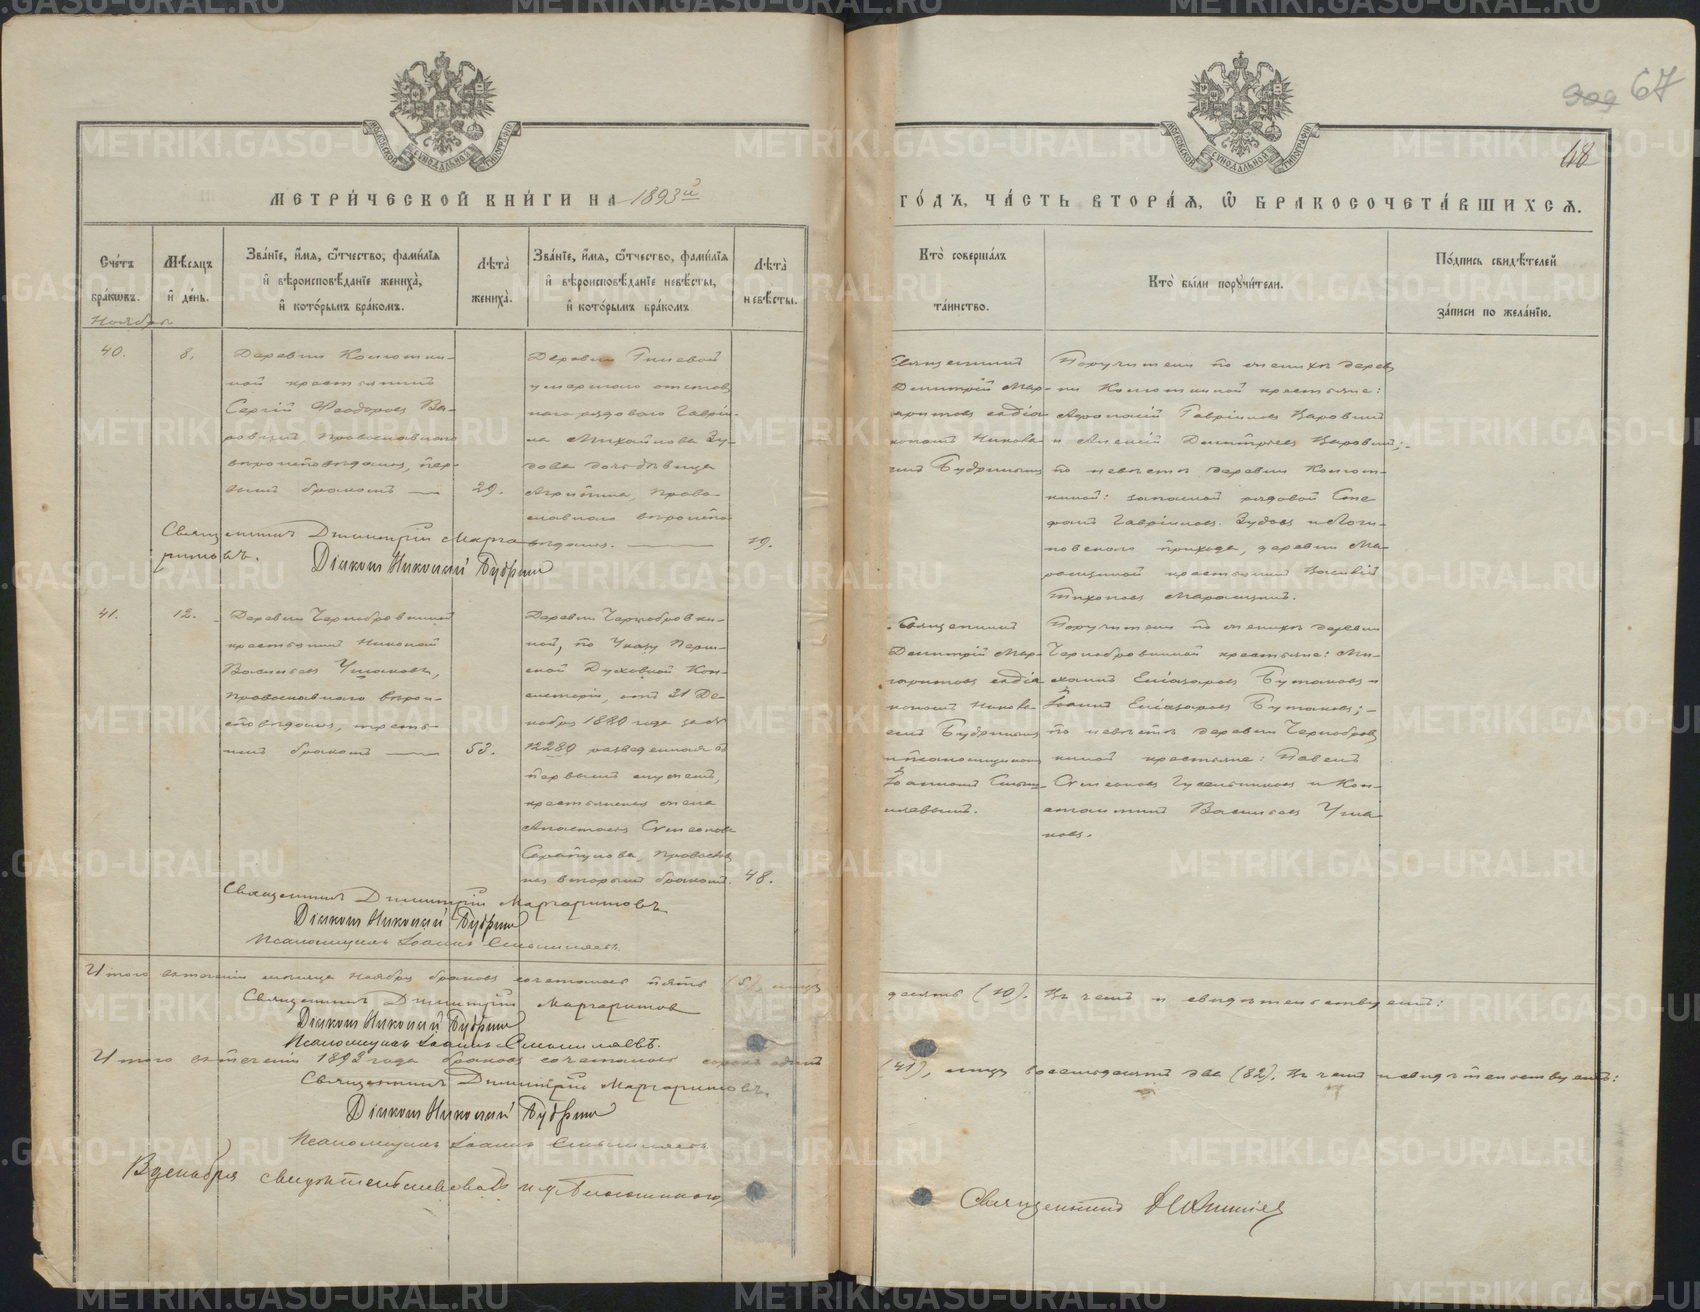 МЕТРИ́ЧЕСКОЙ КНИ́ГИ НА 1893й ГО́ДЪ, ЧА́СТЬ ВТОРА́Я, Ѡ БРАКОСОЧЕТА́ВШИХСЯ.
67
68
МОСКОВСКОЙ СУНОДАЛЬНОЙ ТИПОГРАФІИ
МОСКОВСКОЙ СУНОДАЛЬНОЙ ТИПОГРАФІИ
Сче́тъ
бра́ковъ.
Мѣ́сяцъ
и҆ де́нь.
Зва́нїе, и҆́мя, ѻ҆́тчество, фами́лїя
и҆ вѣроисповѣ́данїе жениха̀,
и҆ кото́рымъ бра́комъ.
Лѣта̀
жениха̀.
Зва́нїе, и҆́мя, ѻ҆́тчество, фами́лїя
и҆ вѣроисповѣ́данїе невѣ́сты,
и҆ кото́рымъ бра́комъ
Лѣта̀
невѣ́сты.
Кто̀ соверша́лъ
та́инство.
Кто̀ бы́ли поручи́тели.
По́дпись свидѣ́телей
за́писи по жела́нїю.
Ноября
40.
8.
крестьянинъ
Сергій Ѳеодоровъ Ва-
ровинъ, православнаго
вѣроисповѣданія, пер-
вымъ бракомъ —
29.
Деревни
умершаго отстав
наго рядового Гаврі-
ла Михайлова Зу-
дова дочь дѣвица
Агрипина, право-
славнаго вѣроиспо
вѣданія. —
19.
Священникъ
Димитрій Мар-
гаритовъ съ діа-
кономъ Никола-
емъ Будринымъ
Поручители по женихѣ дерев
ни крестьяне:
Гавріиловъ Варовинъ
и Алексій Димитріевъ Варовинъ;
по невѣстѣ деревни
запасной рядовой Сте
фанъ Гавріиловъ Зудовъ
прихода, деревни Ма-
крестьянинъ Василій
Тихоновъ
Священникъ Димитрій Марга
ритовъ.
Діаконъ Николай Будринъ
41.
12.
Деревни Чернобровкиной
крестьянинъ Николай
Васильевъ Ушаковъ,
православнаго вѣрои-
сповѣданія, треть-
имъ бракомъ —
53.
Деревни Чернобровки-
ной, по Указу Перм-
ской Духовной Кон-
систоріи, отъ 31 Де-
кабря 1880 года за №
12280 разведенная съ
первымъ мужемъ,
крестьянская жена
Анастасія Симеонова
Сарапулова, православ
ная вторымъ бракомъ.
48.
Священникъ
Димитрій Мар-
гаритовъ съ діа
кономъ Никола-
емъ Будринымъ
и псаломщикомъ
Іоанномъ Смыш-
ляевымъ.
Поручители по женихѣ деревни
Чернобровкиной крестьяне: Ми-
хаилъ Елеазаровъ Бутаковъ и
Іоаннъ Елеазаровъ Бутаковъ; —
по невѣстѣ деревни Чернобров
киной крестьяне: Павелъ
Симеоновъ Гусельниковъ и Кон-
стантинъ Васильевъ Уша-
ковъ.
Священникъ Димитрій Маргаритовъ
Діаконъ Николай Будринъ
Псаломщикъ Іоаннъ Смышляевъ.
Итого въ теченіи мѣсяца Ноября браковъ сочеталось пять (5), лицъ десять (10). Въ чемъ и свидѣтельствуемъ:
Священникъ Димитрій Маргаритовъ
Діаконъ Николай Будринъ
Псаломщикъ Іоаннъ Смышляевъ.
Итого въ теченіи 1893 года браковъ сочеталось сорокъ одинъ (41), лицъ восемьдесятъ два (82). Въ чемъ и свидѣтельствуемъ:
Священникъ Димитрій Маргаритовъ.
Діаконъ Николай Будринъ
Псаломщикъ Іоаннъ Смышляевъ
В декабря свидѣтельствовалъ
Священникъ
METRIKI.GASO-URAL.RU